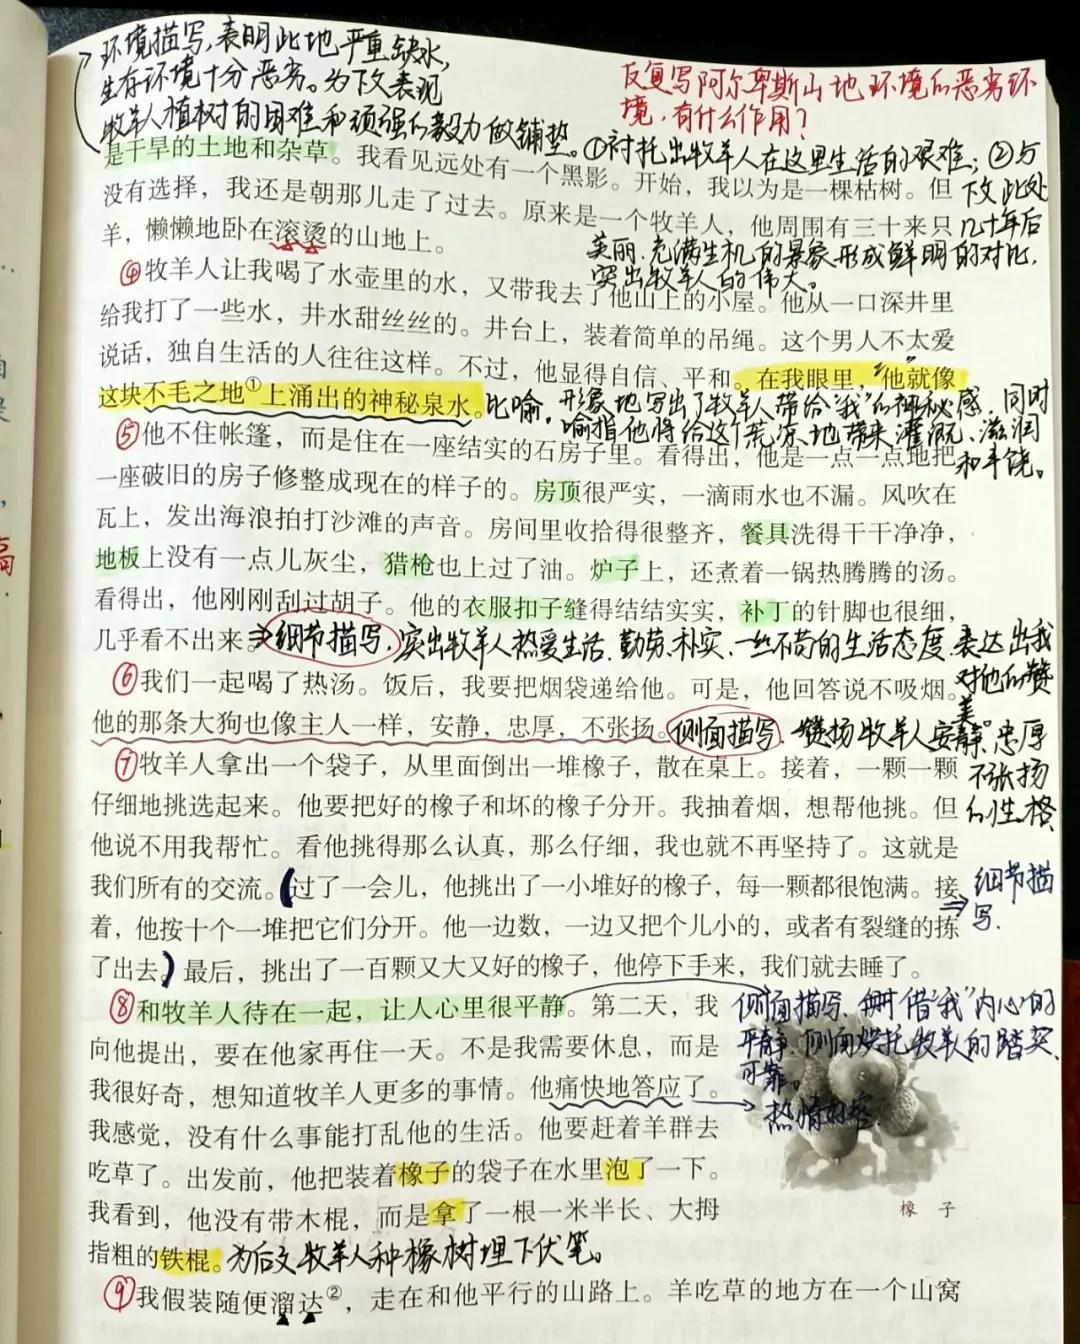 环境描写,表明此地严重缺水,
生存环境十分恶劣。为下文表现
牧羊人植树的困难和顽强的毅力做铺垫。
反复写阿尔卑斯山地环境的恶劣环
境,有什么作用?
①衬托出牧羊人在这里生活的艰难;②与
下文此处
几十年后
美丽.充满生机的景象形成鲜明的对比,
突出牧羊人的伟大。
是干旱的土地和杂草。我看见远处有一个黑影。开始,我以为是一棵枯树。但
没有选择,我还是朝那儿走了过去。原来是一个牧羊人,他周围有三十来只
羊,懒懒地卧在滚烫的山地上。
④牧羊人让我喝了水壶里的水,又带我去了他山上的小屋。他从一口深井里
给我打了一些水,井水甜丝丝的。井台上,装着简单的吊绳。这个男人不太爱
说话,独自生活的人往往这样。不过,他显得自信、平和。在我眼里,他就像
这块不毛之地①上涌出的神秘泉水。
比喻.形象地写出了牧羊人带给“我”的神秘感,同时
喻指他将给这个荒凉地带来灌溉、滋润
和丰饶。
⑤他不住帐篷,而是住在一座结实的石房子里。看得出,他是一点一点地把
一座破旧的房子修整成现在的样子的。房顶很严实,一滴雨水也不漏。风吹在
瓦上,发出海浪拍打沙滩的声音。房间里收拾得很整齐,餐具洗得干干净净,
地板上没有一点儿灰尘,猎枪也上过了油。炉子上,还煮着一锅热腾腾的汤。
看得出,他刚刚刮过胡子。他的衣服扣子缝得结结实实,补丁的针脚也很细,
几乎看不出来。
细节描写,突出牧羊人热爱生活.勤劳.朴实.一丝不苟的生活态度.表达出我
对他的赞
美。
⑥我们一起喝了热汤。饭后,我要把烟袋递给他。可是,他回答说不吸烟。
他的那条大狗也像主人一样,安静,忠厚,不张扬。
侧面描写.赞扬牧羊人安静.忠厚
不张扬
的性格
⑦牧羊人拿出一个袋子,从里面倒出一堆橡子,散在桌上。接着,一颗一颗
仔细地挑选起来。他要把好的橡子和坏的橡子分开。我抽着烟,想帮他挑。但
他说不用我帮忙。看他挑得那么认真,那么仔细,我也就不再坚持了。这就是
我们所有的交流。(过了一会儿,他挑出了一小堆好的橡子,每一颗都很饱满。接
着,他按十个一堆把它们分开。他一边数,一边又把个儿小的,或者有裂缝的拣
了出去。)最后,挑出了一百颗又大又好的橡子,他停下手来,我们就去睡了。
细节描
写.
⑧和牧羊人待在一起,让人心里很平静。第二天,我
向他提出,要在他家再住一天。不是我需要休息,而是
我很好奇,想知道牧羊人更多的事情。他痛快地答应了。
我感觉,没有什么事能打乱他的生活。他要赶着羊群去
吃草了。出发前,他把装着橡子的袋子在水里泡了一下。
我看到,他没有带木棍,而是拿了一根一米半长、大拇
指粗的铁棍。
侧面描写、借“我”内心的
平静.侧面烘托牧羊人的踏实、
可靠。
热情好客
橡 子
为后文牧羊人种橡树埋下伏笔。
⑨我假装随便溜达②,走在和他平行的山路上。羊吃草的地方在一个山窝